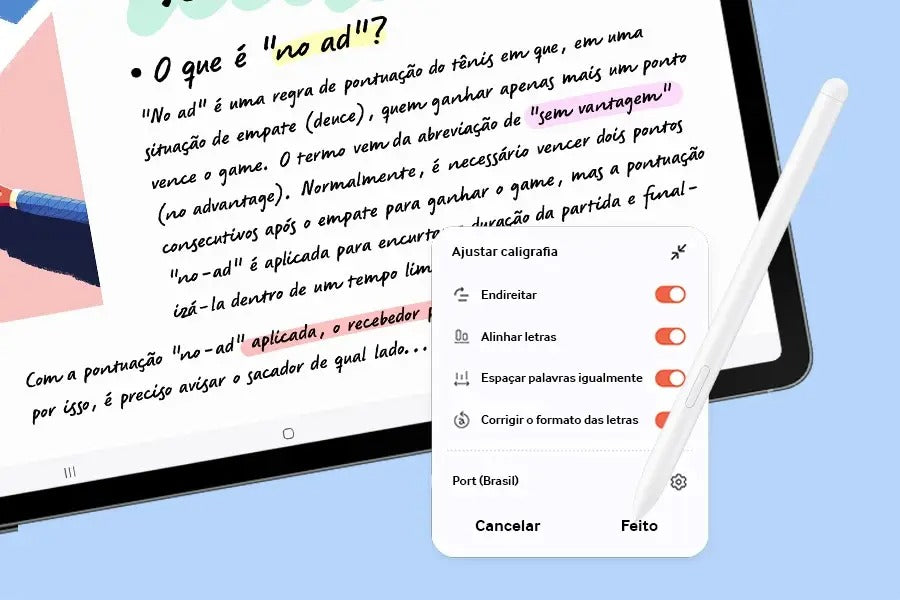 • O que é "no ad"?
"No ad" é uma regra de pontuação do tênis em que, em uma
situação de empate (deuce), quem ganhar apenas mais um ponto
vence o game. O termo vem da abreviação de "sem vantagem"
(no advantage). Normalmente, é necessário vencer dois pontos
consecutivos após o empate para ganhar o game, mas a pontuação
"no-ad" é aplicada para encurta duração da partida e final-
izá-la dentro de um tempo
Com a pontuação "no-ad" aplicada, o recebedor
por isso, é preciso avisar o sacador de qual lado...
Ajustar caligrafia
Endireitar
Alinhar letras
Espaçar palavras igualmente
Corrigir o formato das letras
Port (Brasil)
Cancelar Feito